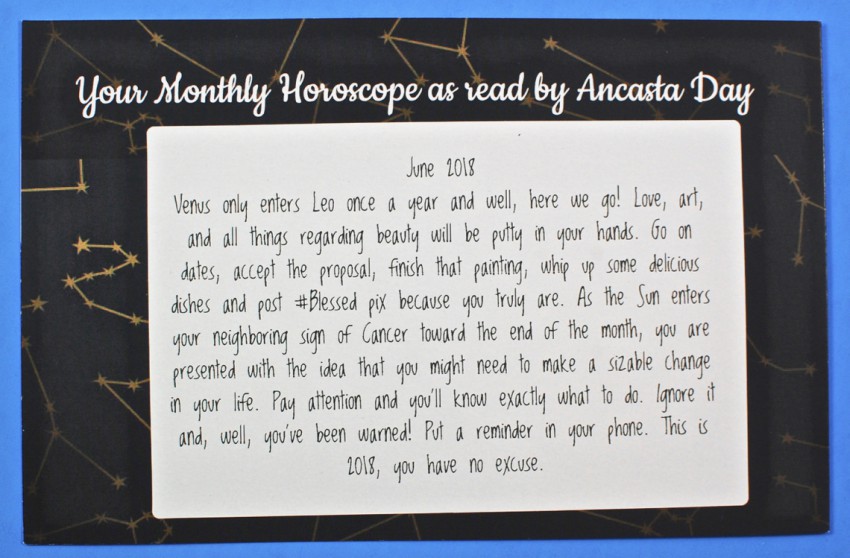 Your Monthly Horoscope as read by Ancasta Day
June 2018
Venus only enters Leo once a year and well, here we go! Love, art,
and all things regarding beauty will be putty in your hands. Go on
dates, accept the proposal, finish that painting, whip up some delicious
dishes and post #Blessed pix because you truly are. As the Sun enters
your neighboring sign of Cancer toward the end of the month, you are
presented with the idea that you might need to make a sizable change
in your life. Pay attention and you'll know exactly what to do. Ignore it
and, well, you've been warned! Put a reminder in your phone. This is
2018, you have no excuse.